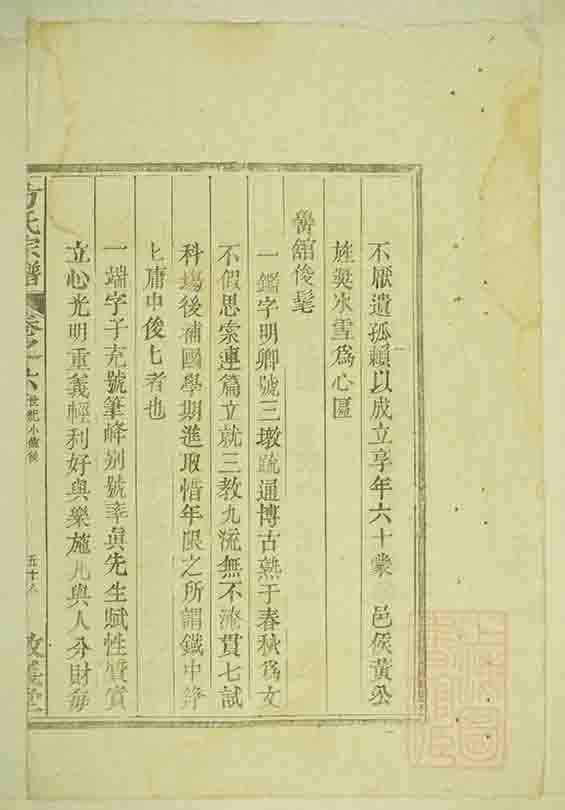 不厭遺孤賴以成立享年六十蒙 邑侯黃公
旌奬氷雪爲心匾
黌舘俊髦
一鑑字明卿號三墩疏通博古熟于春秋爲文
不假思索連篇立就三教九流無不淹貫七試
科塲後補國學期進取惜年限之所謂鐵中錚
匕庸中佼匕者也
一端字子充號筆峰别號率眞先生賦性質實
立心光明重義輕利好與樂施凢與人分財每
方氏宗譜
卷之六
世紀小
五十八